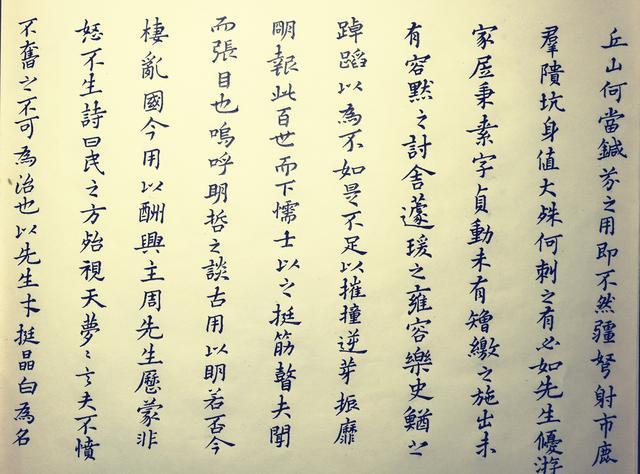 丘山何當鍼芥之用即不然彊弩射市鹿
羣隤坑身值大殊何刺之有必如先生優游
家居秉素字貞動未有矰繳之施出未
有容默之討舍蘧瑗之雍容樂史鰌之
踔蹈以為不如是不足以摧撞逆芽振靡
明報此百世而下懦士以之挺筋瞽夫聞
而張目也嗚呼明哲之談古用以明若否今
棲亂國今用以酬興主周先生歷蒙非
怒不生詩曰民之方殆視天夢〻言夫不憤
不奮之不可為治也以先生卞挺晶白為名